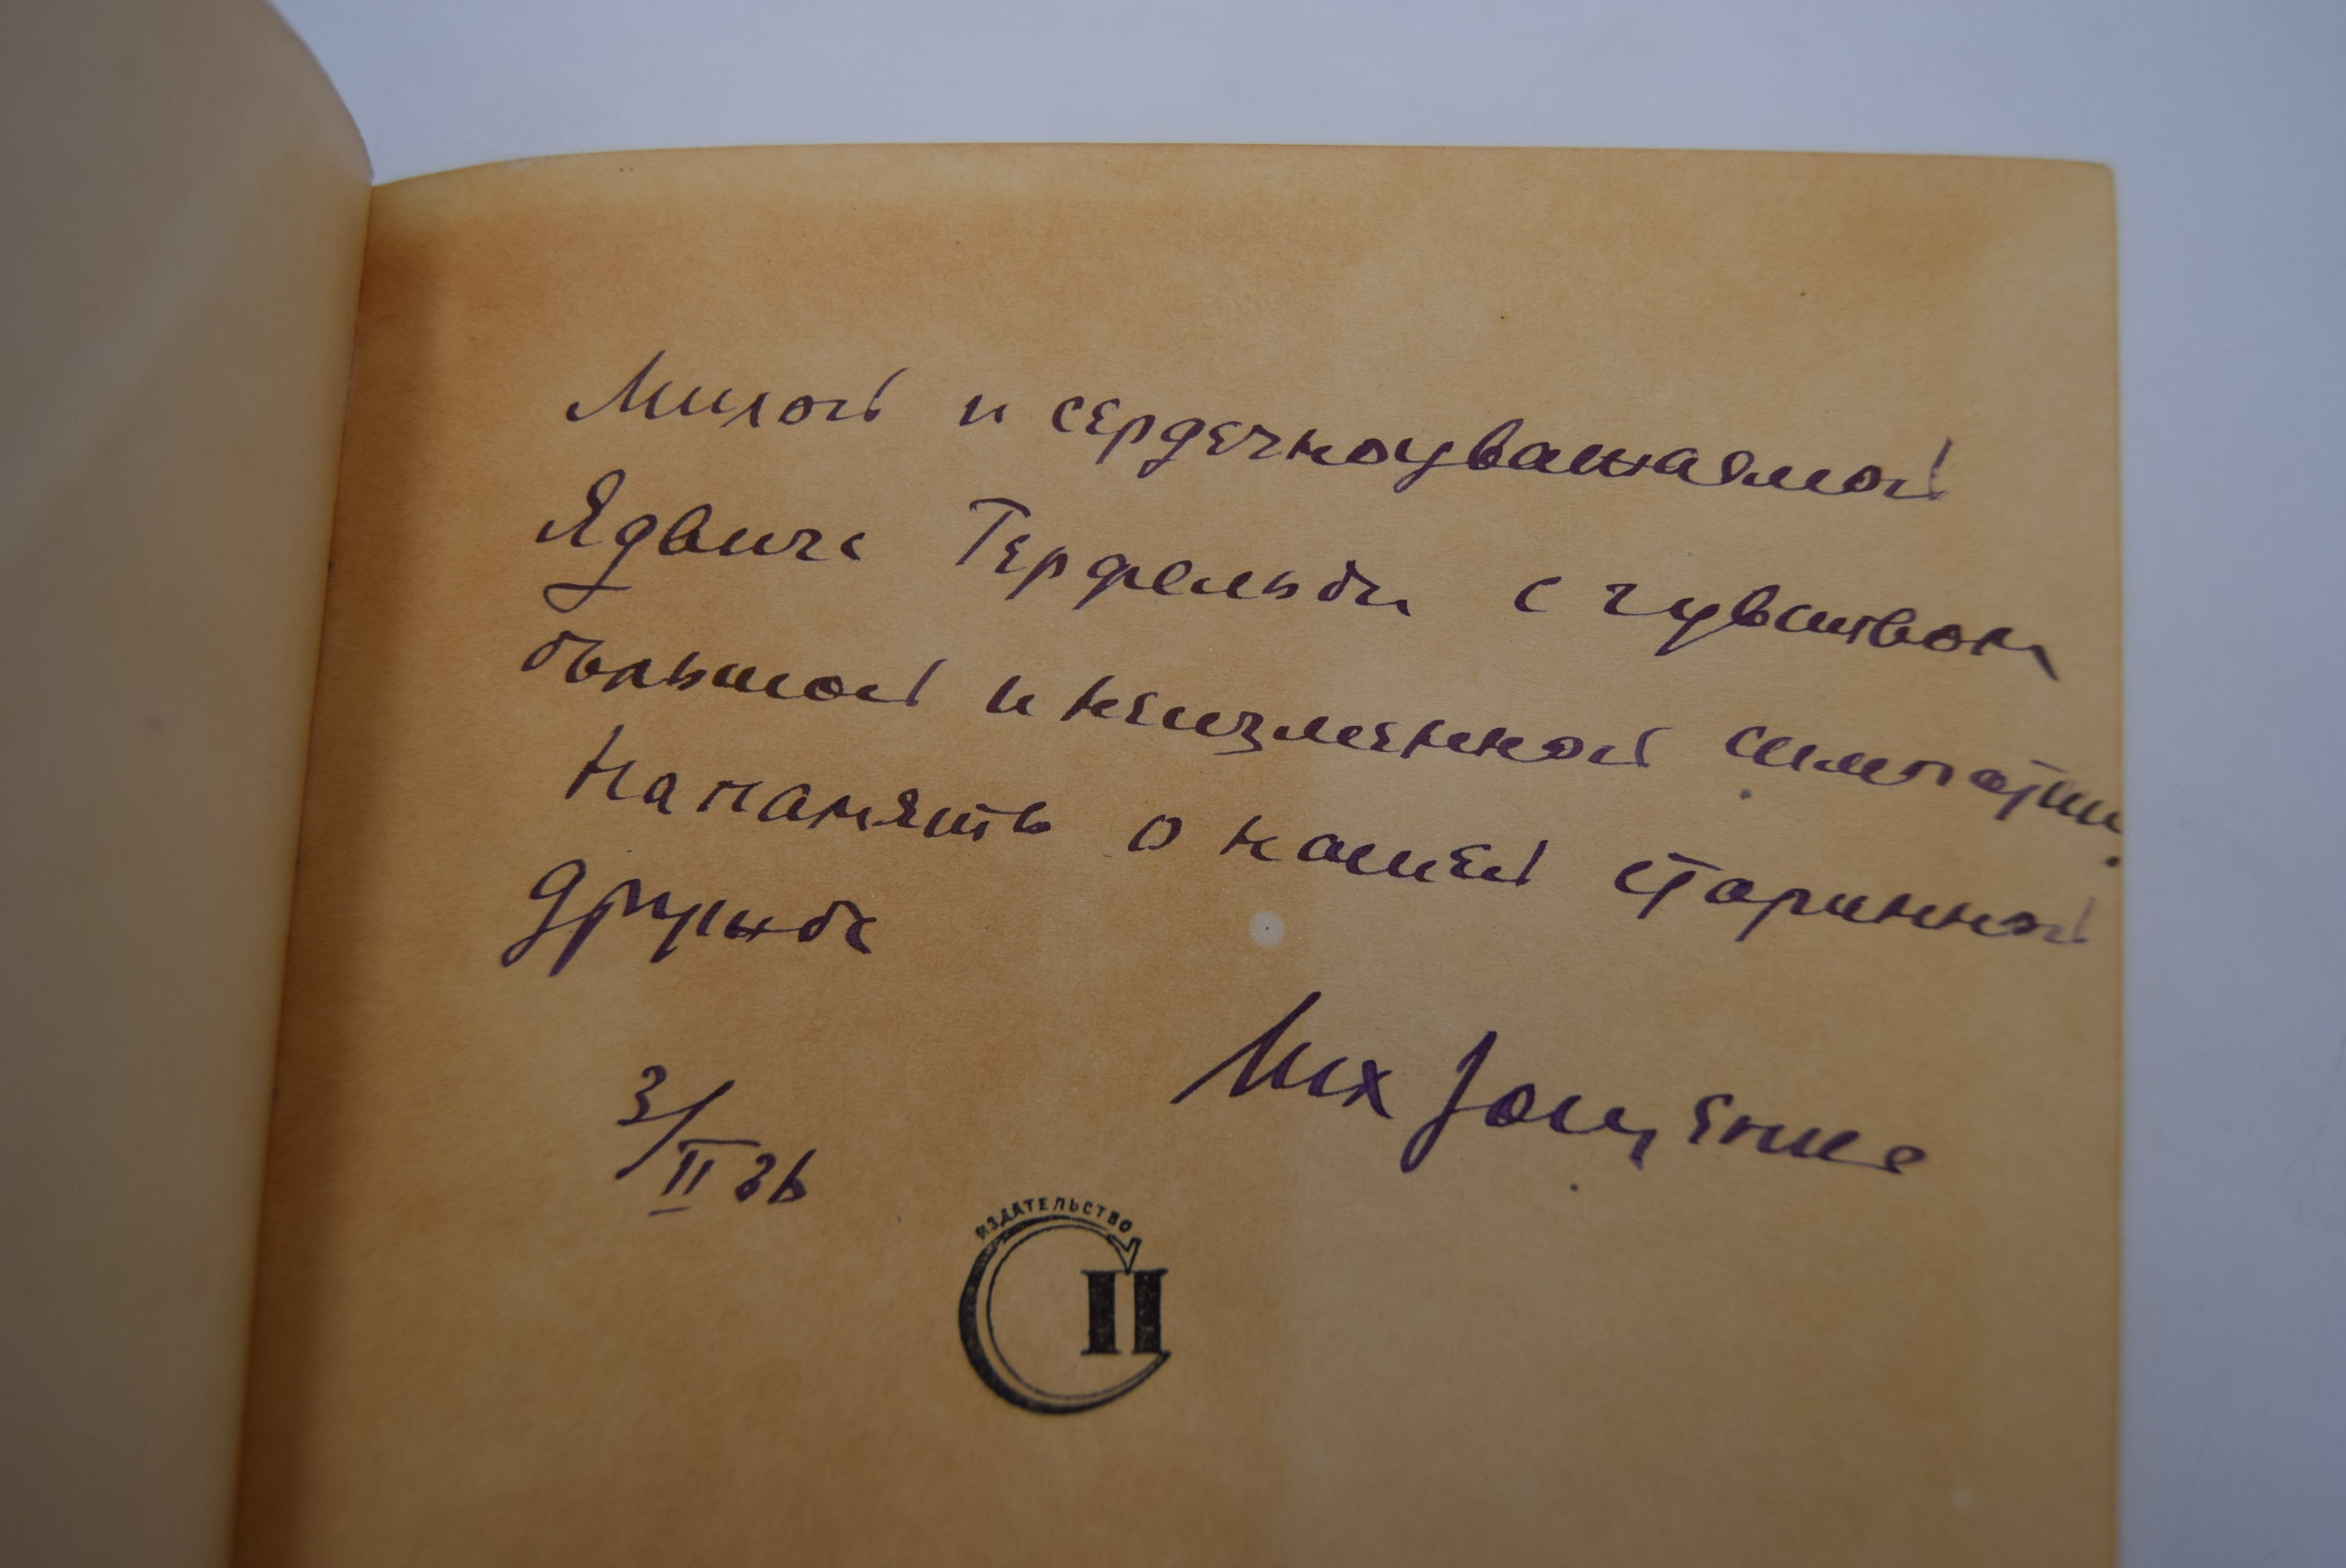 Милой и сердечноуважаемой
Ядвиге Герфельди с чувством
большой и неизменной симпатии.
На память о нашей старинной
дружбе
Мих Зощенко
3/II 36
ИЗДАТЕЛЬСТВО
СП